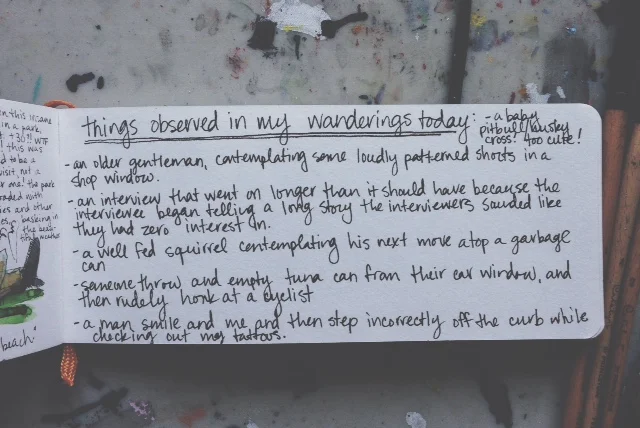 n this insane
in a park,
+30?! WTF
! this was
d to be a
visit, not a
r one! the park
raded with
ies and other
es, basking in
the beau-
tiful weather
beach"
things observed in my wanderings today: - a baby
pitbull/husky
cross! too cute!
- an older gentleman, contemplating some loudly patterned shorts in a
shop window.
- an interview that went on longer than it should have because the
interviewee began telling a long story the interviewers sounded like
they had zero interest in.
- a well fed squirrel contemplating his next move atop a garbage
can
- someone throw and empty tuna can from their car window, and
then rudely honk at a cyclist
- a man smile and me and then step incorrectly off the curb while
checking out my tattoos.